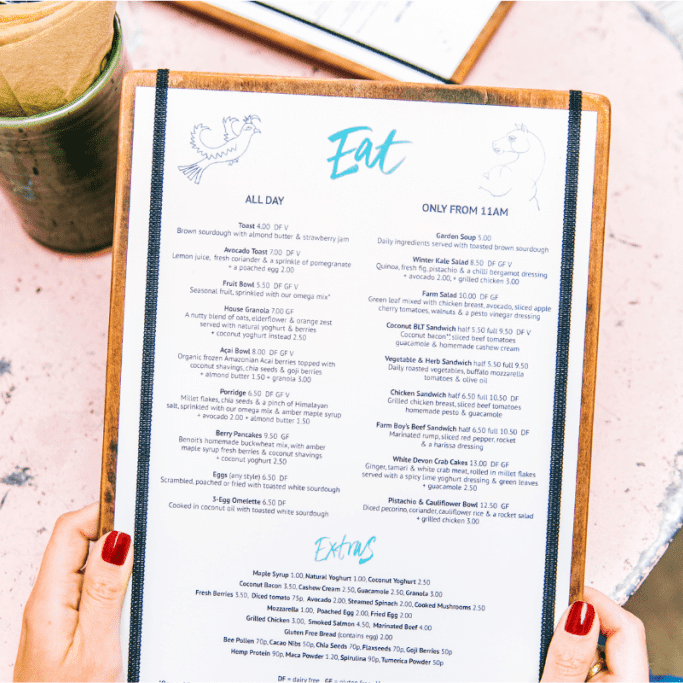 Eat
ALL DAY
Toast 4.00 DF V
Brown sourdough with almond butter & strawberry jam
Avocado Toast 7.00 DF V
Lemon juice, fresh coriander & a sprinkle of pomegranate
+ a poached egg 2.00
Fruit Bowl 5.50 DF GF V
Seasonal fruit, sprinkled with our omega mix*
House Granola 7.00 GF
A nutty blend of oats, elderflower & orange zest
served with natural yoghurt & berries
+ coconut yoghurt instead 2.50
Açai Bowl 8.00 DF GF V
Organic frozen Amazonian Acai berries topped with
coconut shavings, chia seeds & goji berries
+ almond butter 1.50 + granola 3.00
Porridge 6.50 DF GF V
Millet flakes, chia seeds & a pinch of Himalayan
salt, sprinkled with our omega & amber maple syrup
+ avocado 2.00 + almond butter 1.50
Berry Pancakes 9.50 GF
Benoit's homemade buckwheat mix, with amber
maple syrup fresh berries & coconut shavings
+ coconut yoghurt 2.50
Eggs (any style) 6.50 DF
Scrambled, poached or fried with toasted white sourdough
3-Egg Omelette 6.50 DF
Cooked in coconut oil with toasted white sourdough
ONLY FROM 11AM
Garden Soup 5.00
Daily ingredients served with toasted brown sourdough
Winter Kale Salad 8.50 DF GF V
Quinoa, fresh fig, pistachio & a chilli bergamot dressing
+ avocado 2.00, + grilled chicken 3.00
Farm Salad 10.00 DF GF
Green leaf mixed with chicken breast, avocado, sliced apple
cherry tomatoes, walnuts & a pesto vinegar dressing
Coconut BLT Sandwich half 5.50 full 9.50 DF V
Coconut bacon**, sliced beef tomatoes
guacamole & homemade cashew cream
Vegetable & Herb Sandwich half 5.50 full 9.50
Daily roasted vegetables, buffalo mozzarella
tomatoes & olive oil
Chicken Sandwich half 6.50 full 10.50 DF
Grilled chicken breast, sliced beef tomatoes
homemade pesto & guacamole
Farm Boy's Beef Sandwich half 6.50 full 10.50 DF
Marinated rump, sliced red pepper, rocket
& a harissa dressing
White Devon Crab Cakes 13.00 DF GF
Ginger, tamari & white crab meat, rolled in millet flakes
served with a spicy lime yoghurt dressing & green leaves
+ guacamole 2.50
Pistachio & Cauliflower Bowl 12.50 GF
Diced pecorino, coriander, cauliflower rice & a rocket salad
+ grilled chicken 3.00
Extras
Maple Syrup 1.00, Natural Yoghurt 1.00, Coconut Yoghurt 2.50
Coconut Bacon 3.50, Cashew Cream 2.50, Guacamole 2.50, Granola 3.00
Fresh Berries 3.50, Diced tomato 75p, Avocado 2.00, Steamed Spinach 2.00, Cooked Mushrooms 2.50
Mozzarella 1.00, Poached Egg 2.00, Fried Egg 2.00
Grilled Chicken 3.00, Smoked Salmon 4.50, Marinated Beef 4.00
Gluten Free Bread (contains egg) 2.00
Bee Pollen 70p, Cacao Nibs 50p, Chia Seeds 70p, Flaxseeds 70p, Goji Berries 50p
Hemp Protein 90p, Maca Powder 1.20, Spirulina 90p, Tumerica Powder 50p
DF = dairy free GF =